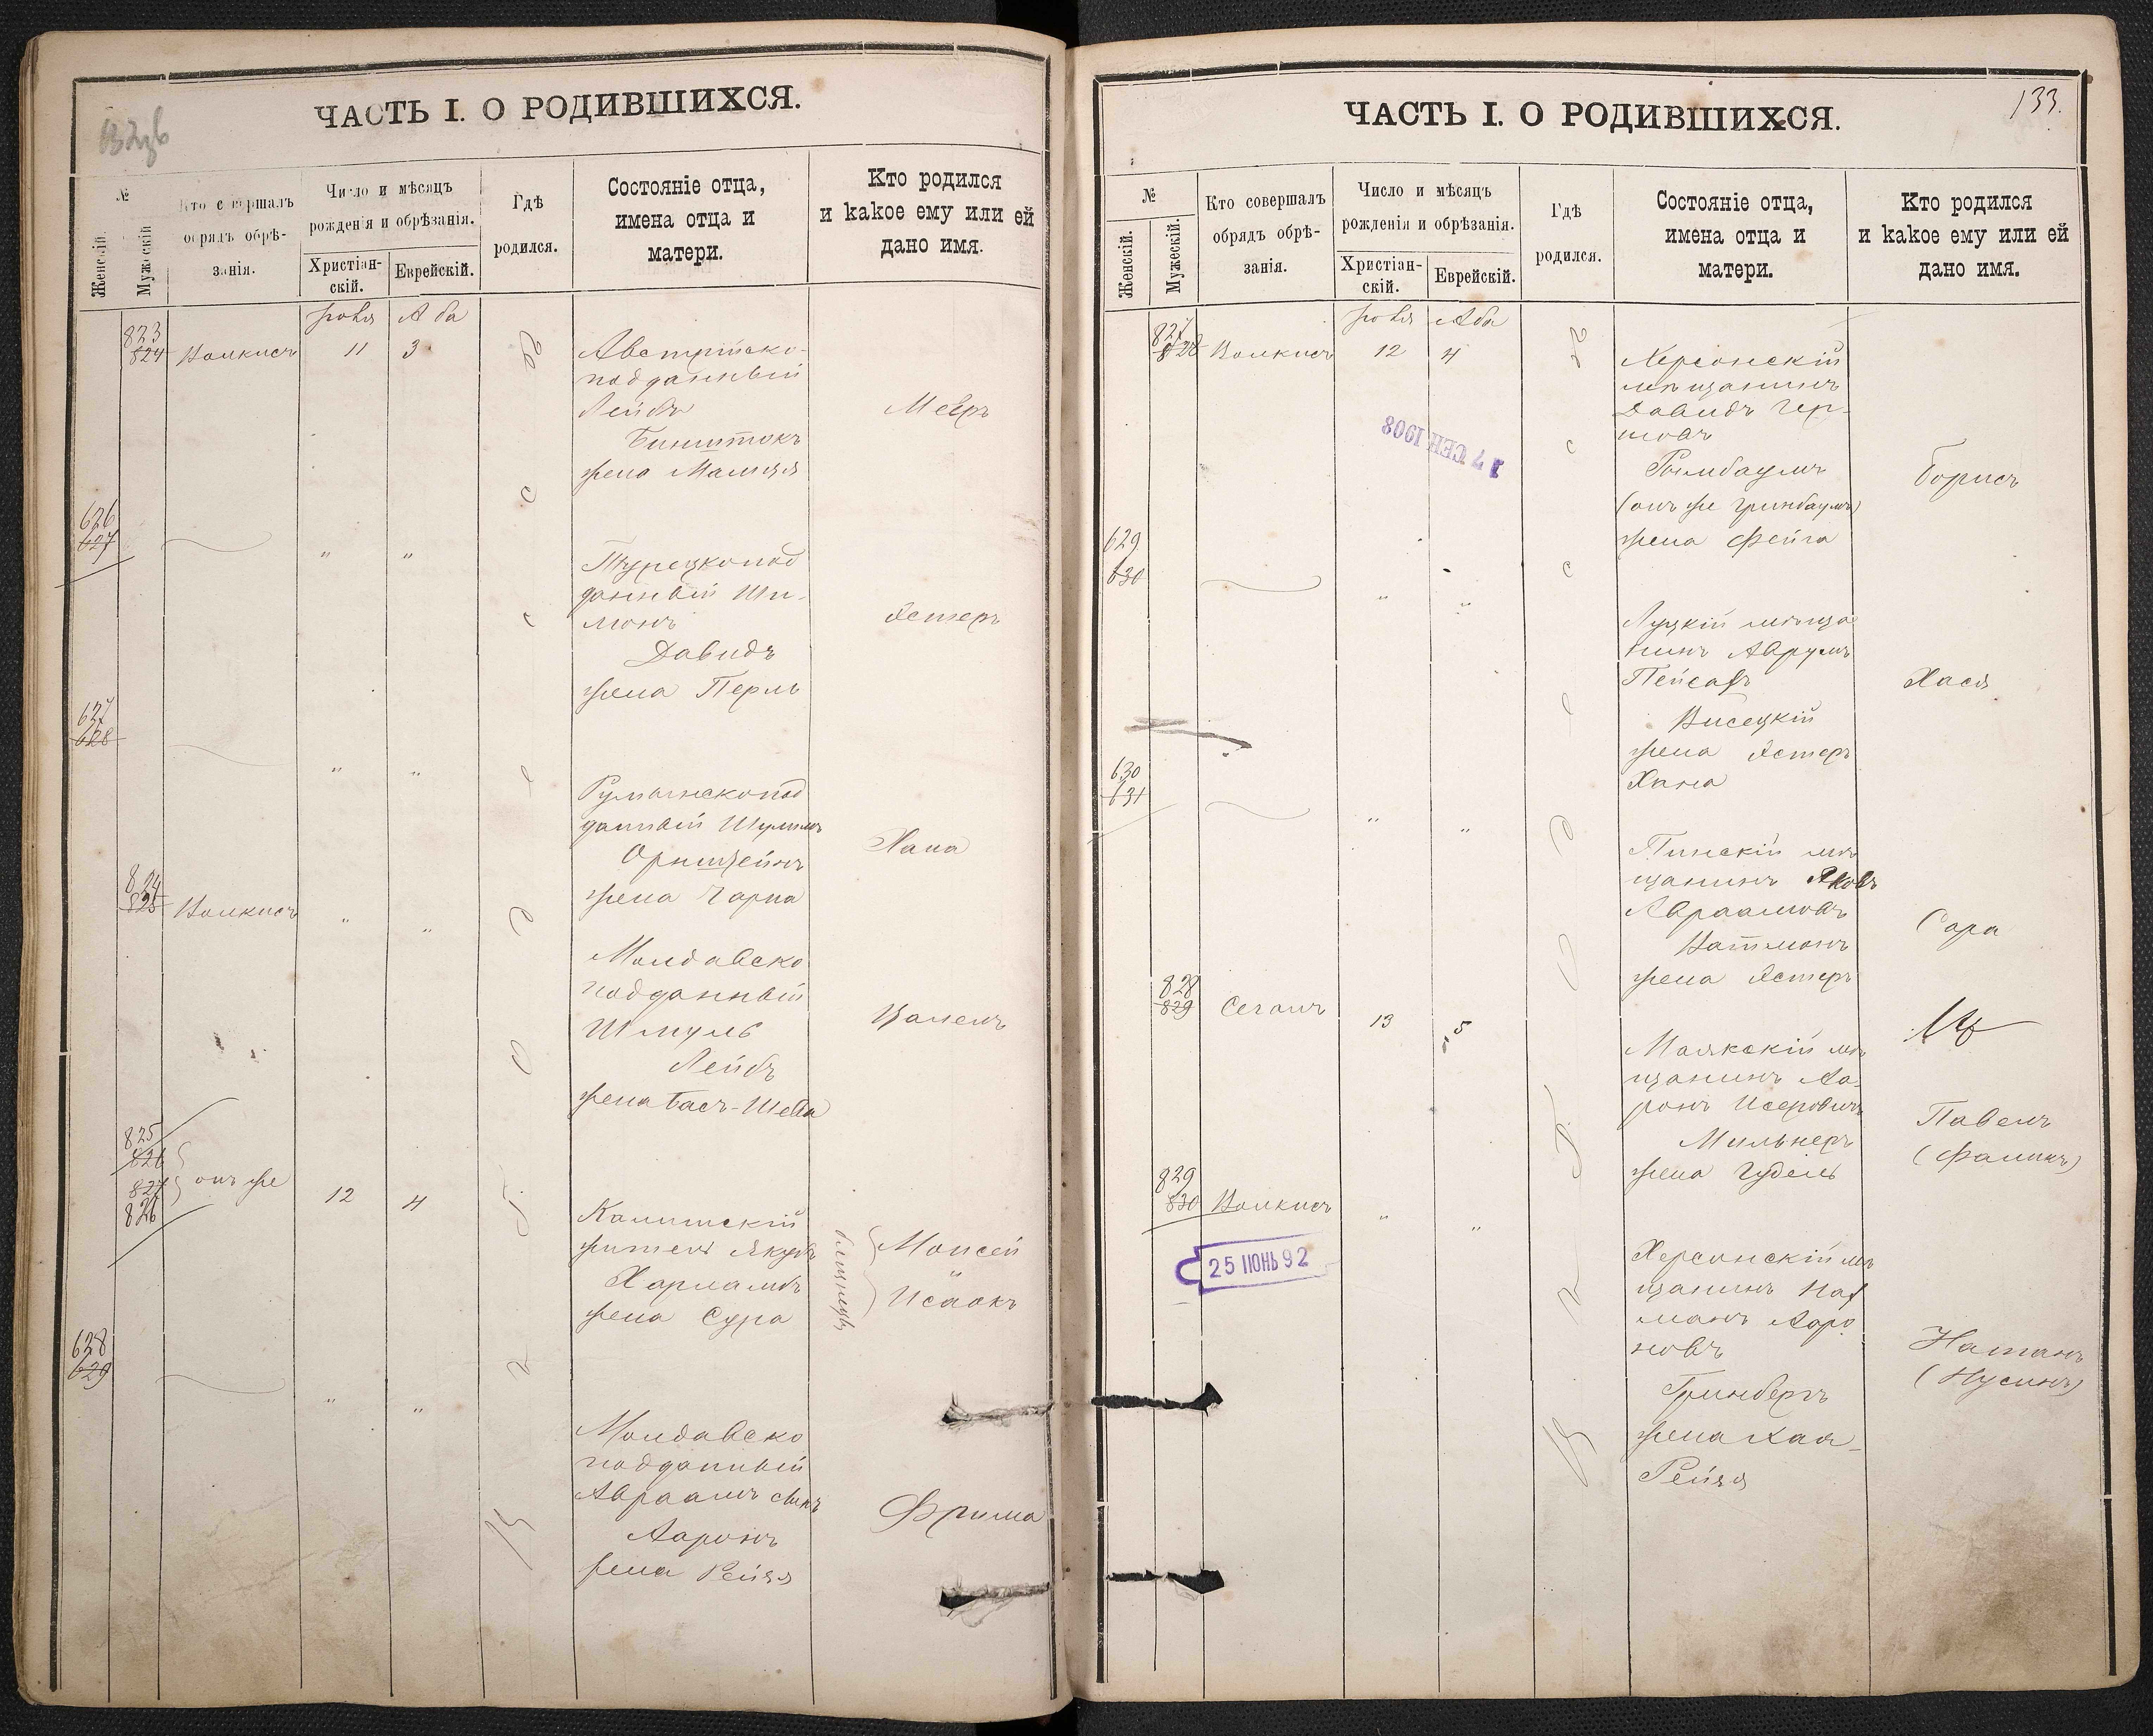 ЧАСТЬ I. О РОДИВШИХСЯ.
№
Женскій.
Мужескій
Кто совершалъ
обрядъ обрѣ-
занія.
Число и мѣсяцъ
рожденія и обрѣзанія.
Христіан-
скій.
Еврейскій.
Гдѣ
родился.
Состояніе отца,
имена отца и
матери.
Кто родился
и какое ему или ей
дано имя.
Аба
823
824
Волкисъ
11
3
Австрійско-
подданный
Лейбъ
Бинштокъ
жена Малця
Меѣръ
626
627
"
"
Турецкопод
данный Ши-
монъ
Давидъ
жена Перль
Эстеръ
627
628
"
"
Румынскопод
данный Шулимъ
Орнштейнъ
жена Чарна
Хана
824
825
Волкисъ
"
"
Молдавско
подданный
Шмуль
Лейбъ
жена Басъ-Шева
825
826
827
826
онъ же
12
4
житель Якубъ
жена Сура
близнецы
Моисей
Исаакъ
628
629
"
"
Молдавско
подданный
Авраамъ сынъ
Ааронъ
жена Рейзя
Фрима
ЧАСТЬ I. О РОДИВШИХСЯ.
133.
№
Женскій.
Мужескій.
Кто совершалъ
обрядъ обрѣ-
занія.
Число и мѣсяцъ
рожденія и обрѣзанія.
Христіан-
скій.
Еврейскій.
Гдѣ
родился.
Состояніе отца,
имена отца и
матери.
Кто родился
и какое ему или ей
дано имя.
Аба
827
828
Волкисъ
12
4
17 СЕН 1908
Херсонскій
мѣщанинъ
Давидъ Гер-
шовъ
Гринбаумъ)
жена Фейга
Борисъ
629
630
"
"
Луцкій мѣща
нинъ Аврумъ
Пейсахъ
Висецкій
жена Эстеръ
Хана
Хася
630
631
"
"
Пинскій мѣ
щанинъ Яковъ
Авраамовъ
жена Эстеръ
Сара
828
829
Сеганъ
13
5
Маякскій мѣ
щанинъ Аа-
ронъ Исеровичъ
Мильнеръ
жена Гудель
Павелъ
829
830
Волкисъ
"
"
25 ІЮНЬ 92
Херсонскій мѣ
щанинъ Нах
манъ Ааро
новъ
Гринбергъ
жена Хая-
Рейзя
Натанъ
(Нусинъ)